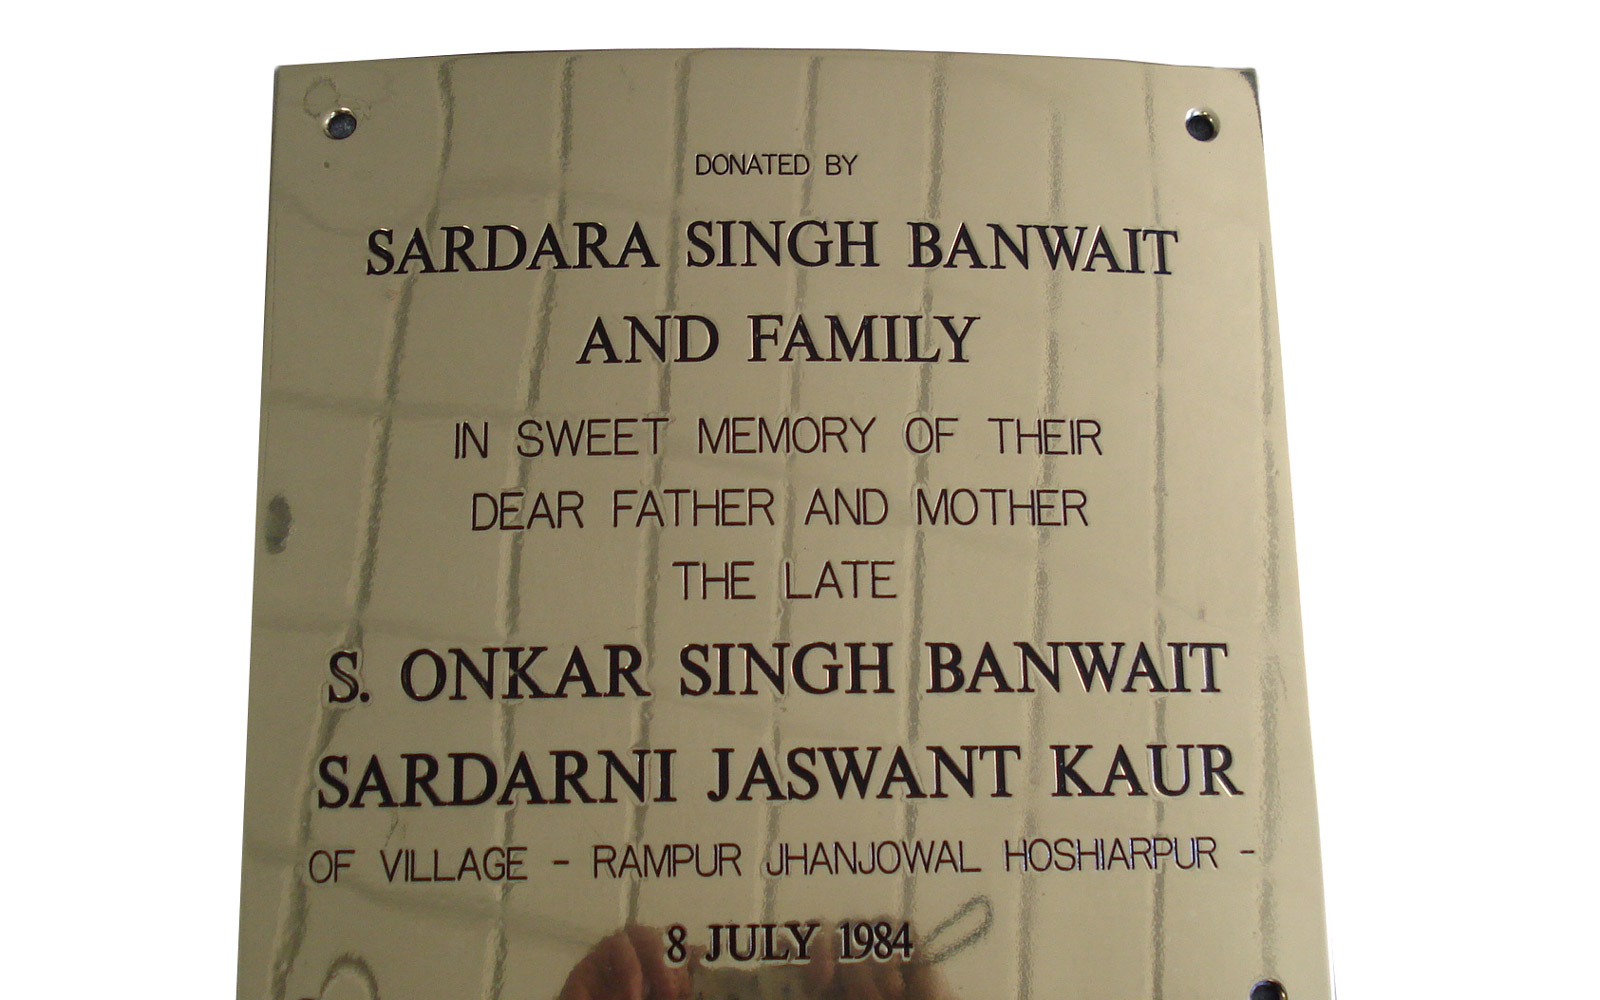 DONATED BY
SARDARA SINGH BANWAIT
AND FAMILY
IN SWEET MEMORY OF THEIR
DEAR FATHER AND MOTHER
THE LATE
S. ONKAR SINGH BANWAIT
SARDARNI JASWANT KAUR
OF VILLAGE - RAMPUR JHANJOWAL HOSHIARPUR -
8 JULY 1984